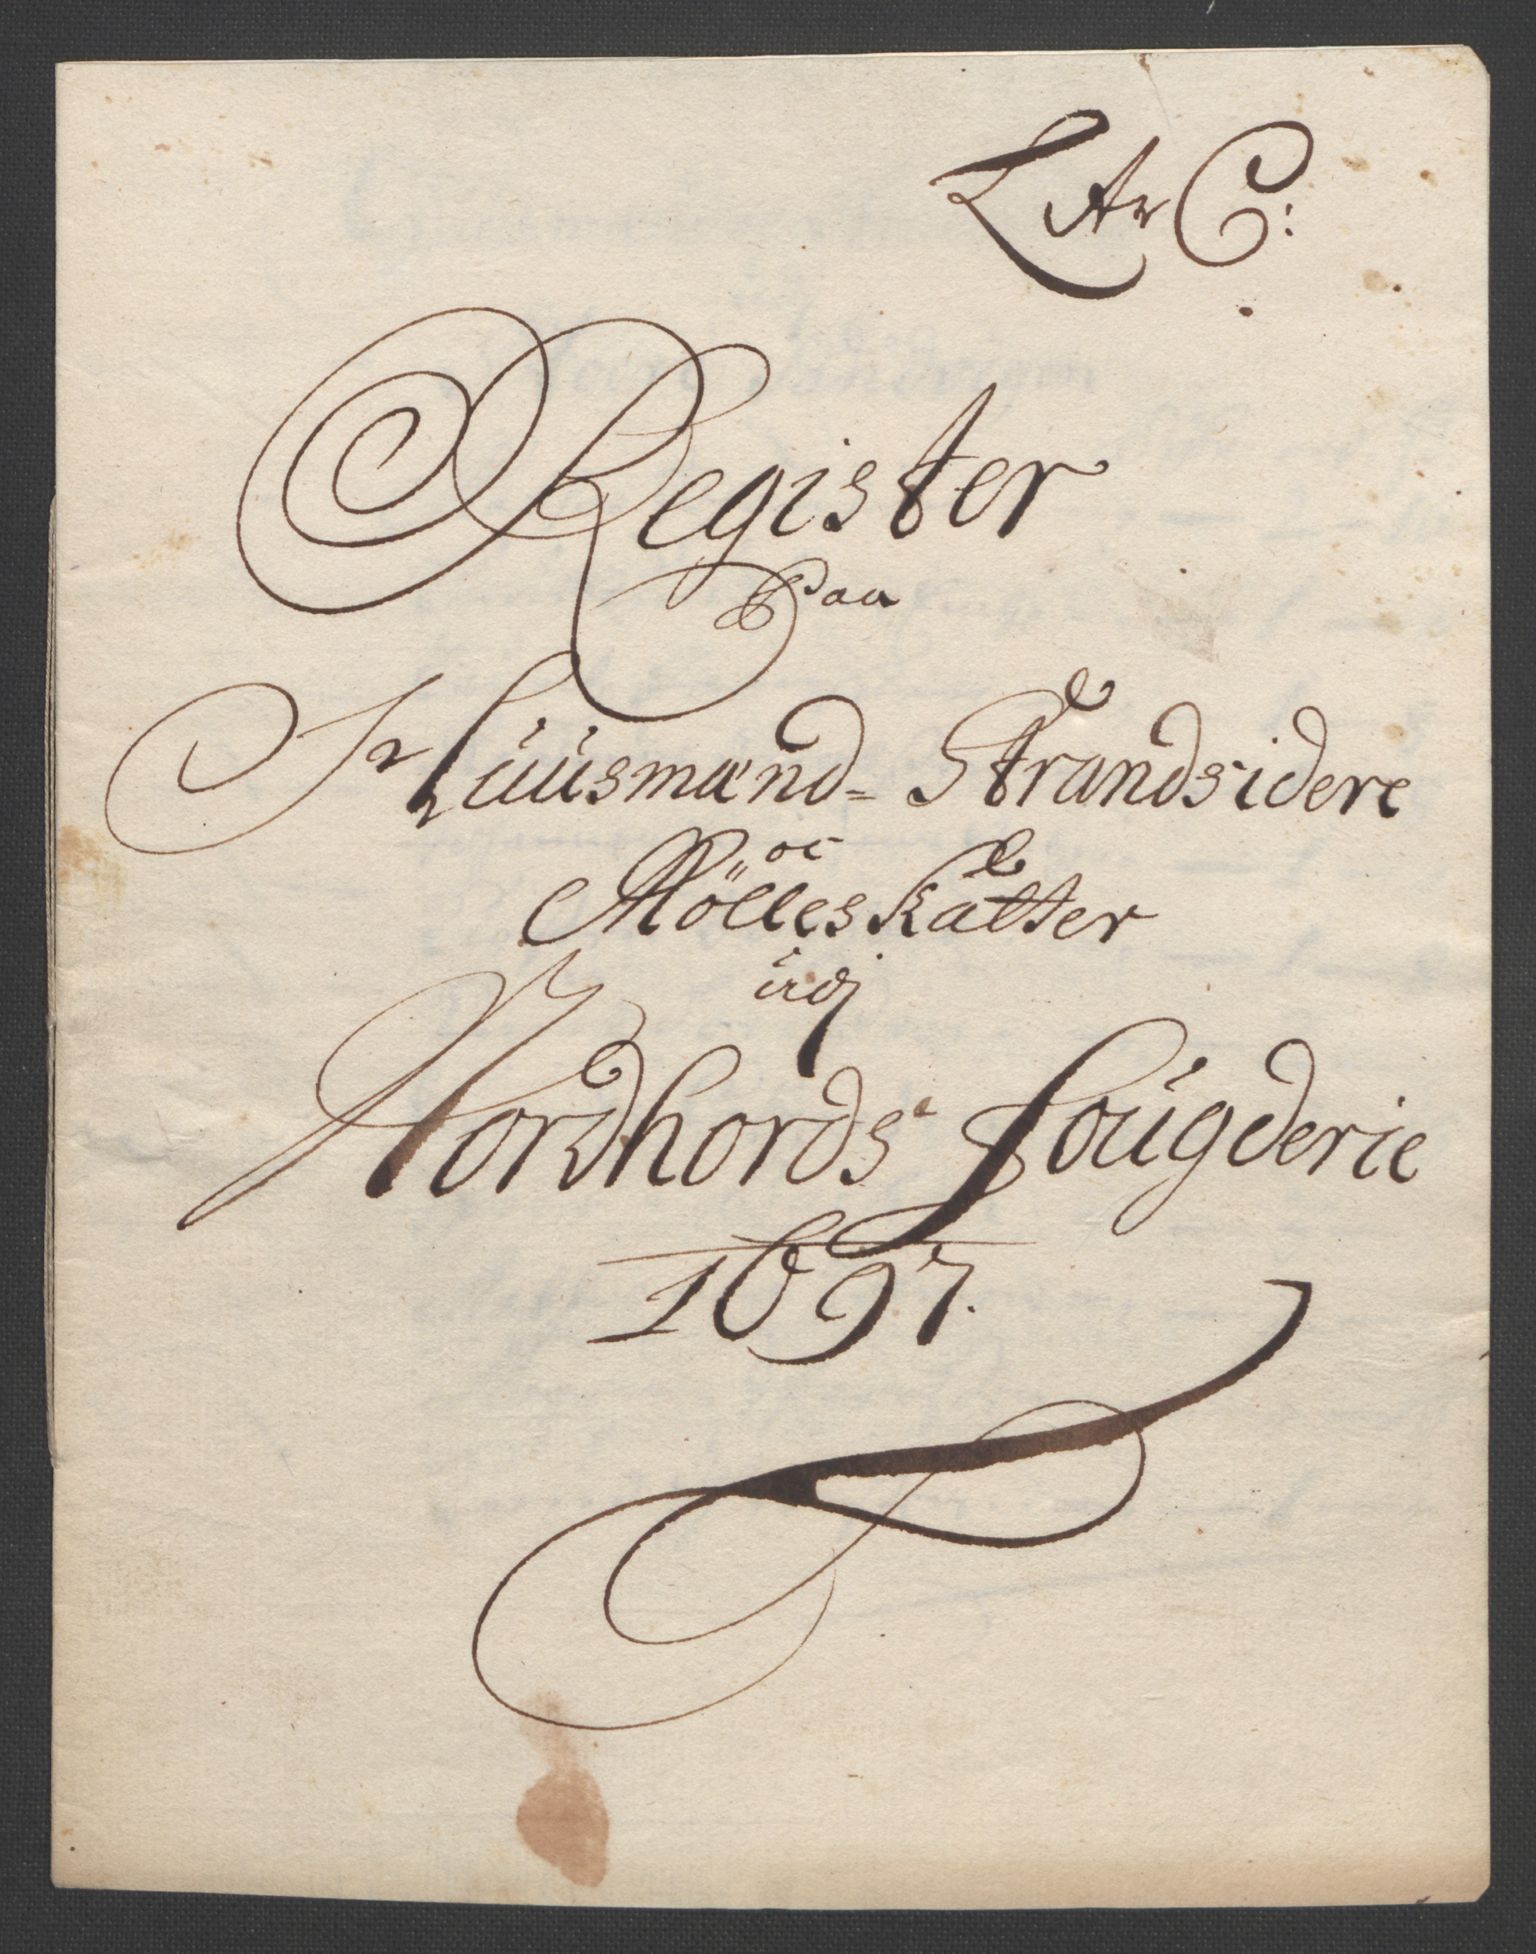 Litr C:
Register
Paa
Huusmænd- Strandsidere
oc
Mölleskatter
udj
Nordhords fougderie
1697.